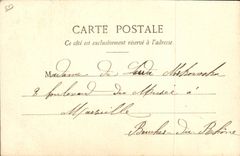 CARTE POSTALE
Ce côté est exclusivement réservé à l'adresse
Madame de
8 boulevard du Musée à
Marseille
Bouches du Rhône